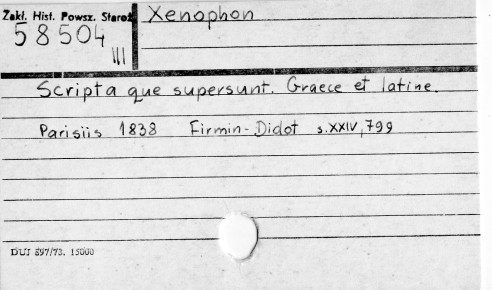 Zakł. Hist. Powsz. Staroż
Xenophon
58504
III
Scripta que supersunt. Graece et latine.
Parisiis 1838 Firmin-Didot s.XXIV, 799
DUJ 897/73. 15000